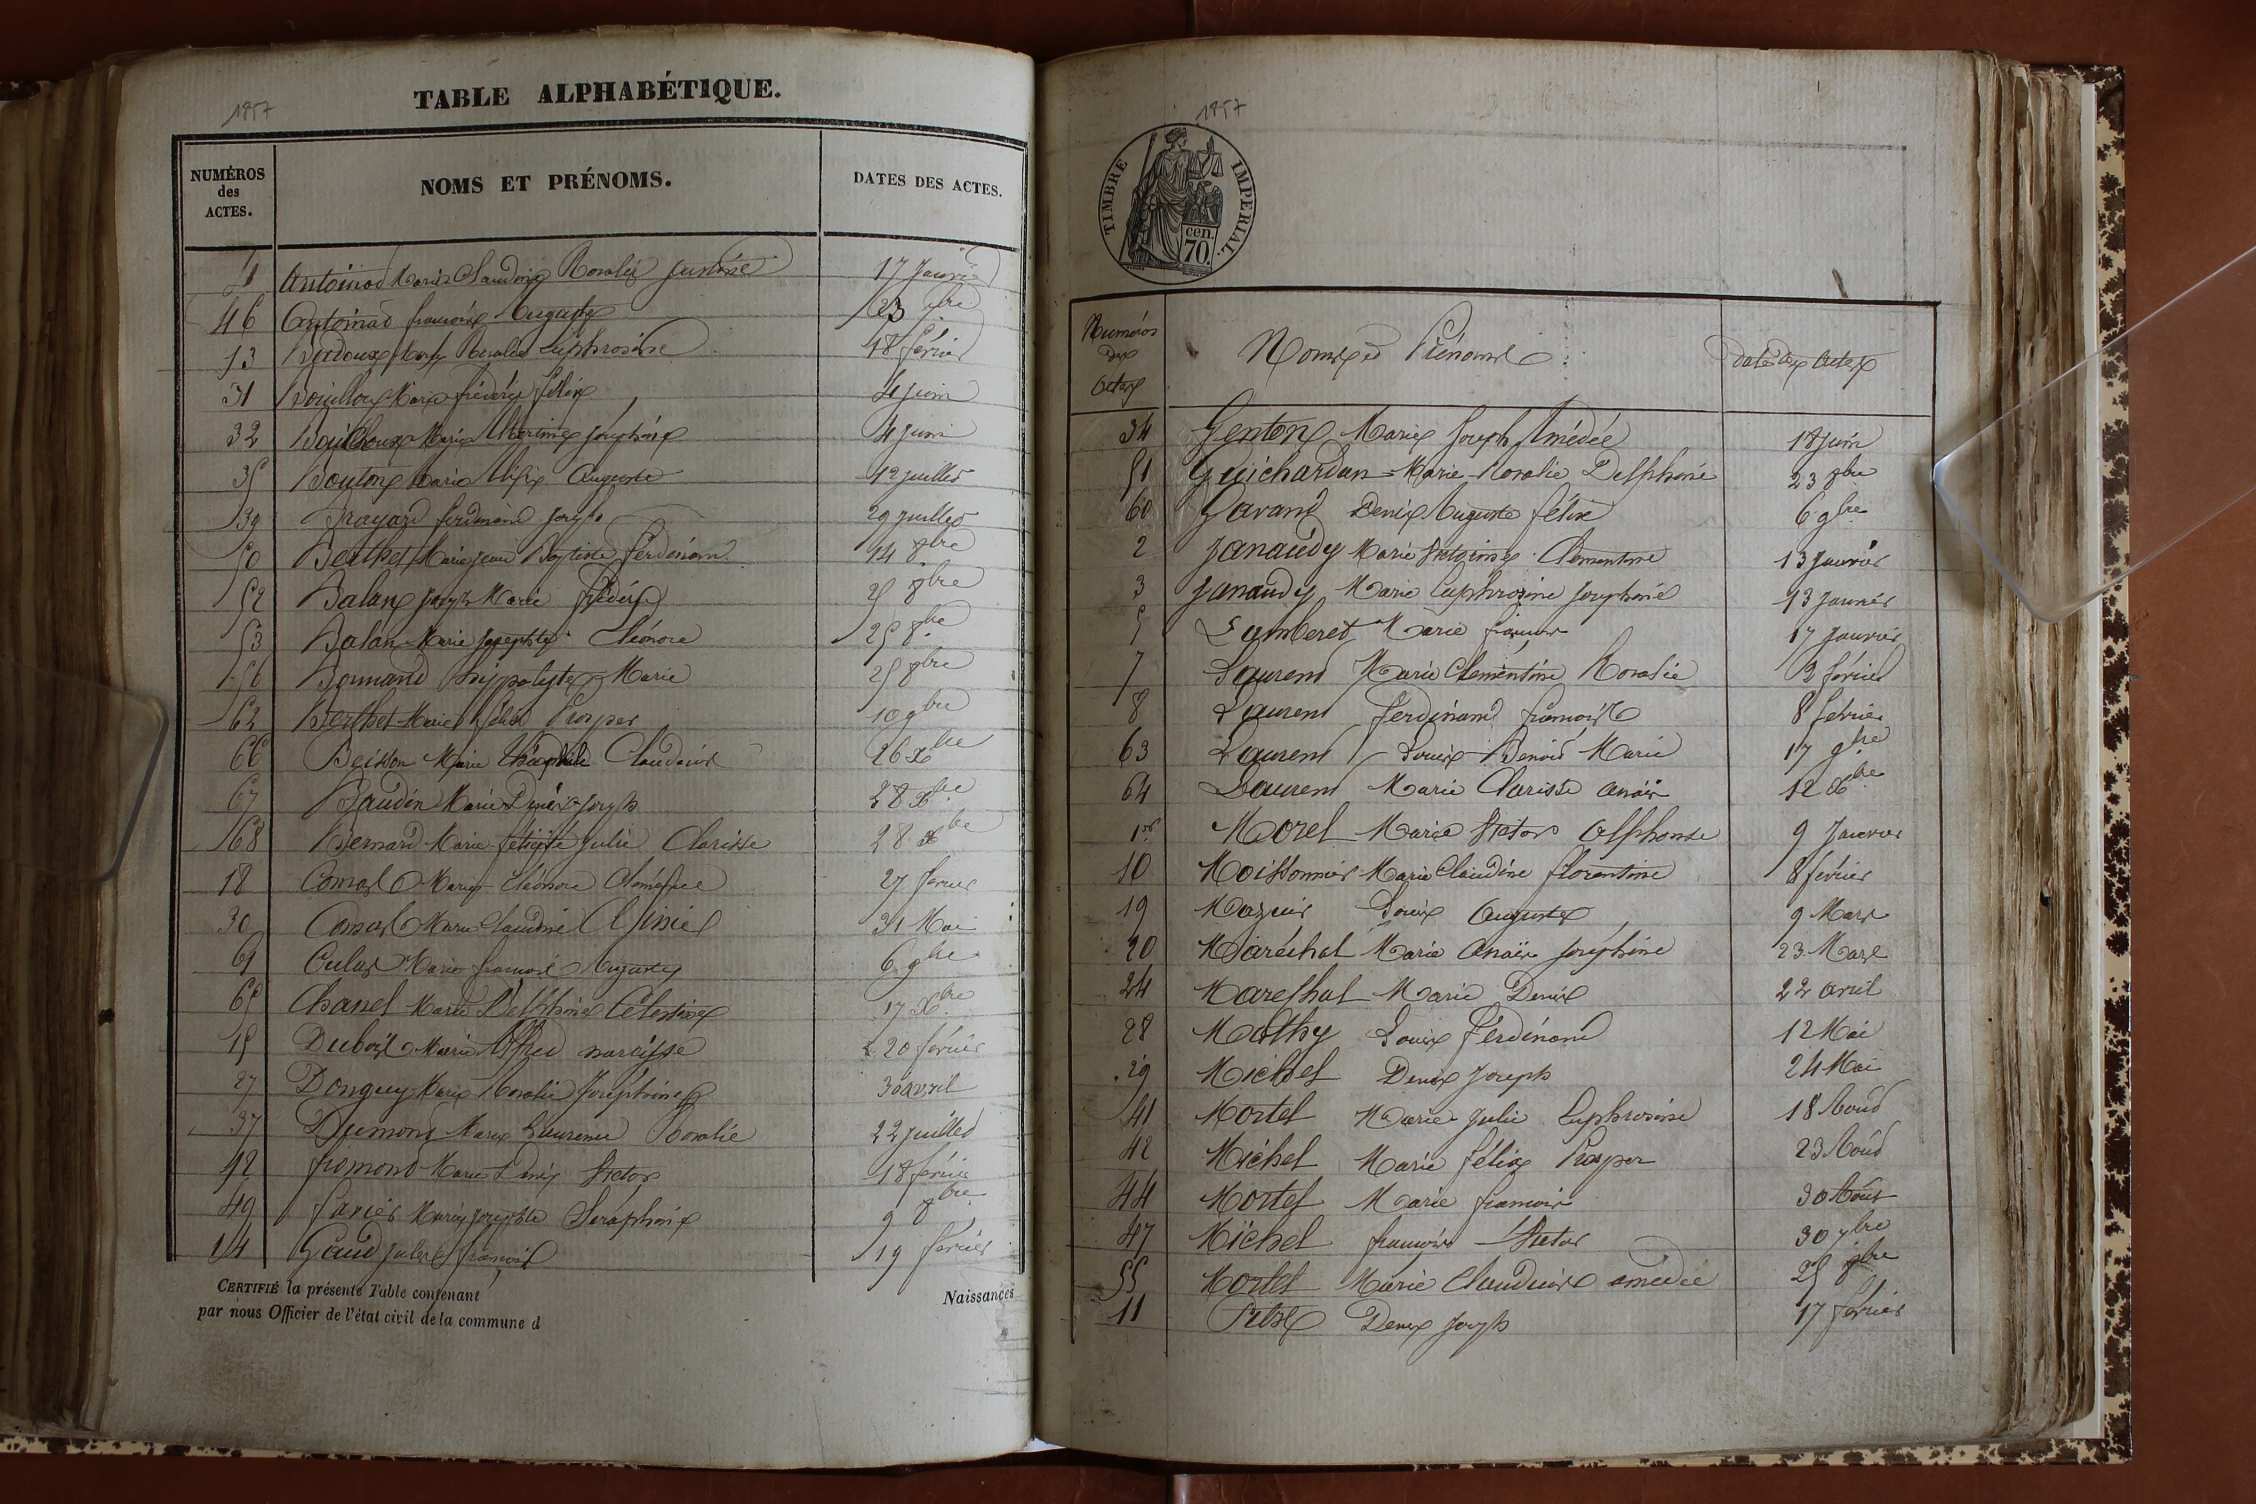 1857
TABLE ALPHABÉTIQUE.
NUMÉROS des ACTES.
NOMS ET PRÉNOMS.
DATES DES ACTES.
4 Antoinad Marie Claudine Rosalie Justine 17 Janvier
46 Antoinad françois Auguste 23 7bre
13 Rosalie Euphrosine 18 février
31 Bouilloux Marie frédéric félix 4 juin
32 Bouilloux Marie Joséphine 4 juin
35 Bouton Marie Auguste 12 juillet
39 Brayard ferdinand Joseph 29 juillet
50 Berthet Marie Jean Baptiste ferdinand 14 8bre
52 Balan Joseph Marie frédéric 25 8bre
53 Balan Marie Josephte Eléonore 25 8bre
56 Bornand hippolyte Marie 25 8bre
62 Berthet Marie félix Prosper 10 9bre
66 Beisson Marie Théophile Claudius 26 Xbre
67 Baudin Marie Denis Joseph 28 Xbre
68 Bernard Marie félicité Julie Clarisse 28 Xbre
18 Comas Marie Eléonore 27 février
30 Comas Marie Claudine 31 Mai
61 Marie françois Auguste 6 9bre
65 Chanel Marie Delphine Célestine 17 Xbre
15 Dubois Marie Alfred narcisse 20 février
27 Donguy Marie Rosalie Joséphine 30 avril
37 Dumont Marie Laurence Rosalie 22 juillet
12 fromont Marie Denis Victor 18 février
49 Marie Josephte Séraphine 9 8bre
14 Jules françois 19 février
CERTIFIÉ la présente Table contenant Naissances
par nous Officier de l'état civil de la commune d
1857
TIMBRE IMPERIAL.
cen.
70.
Numéros des Actes
Noms et Prénoms
Dates des Actes
34 Genton Marie Joseph Amédée 18 juin
51 Guichardan Marie Rosalie Delphine 23 8bre
60 Gavand Denis Auguste félix 6 9bre
2 Janaudy Marie Victorine Clémentine 13 Janvier
3 Janaudy Marie Euphrosine Joséphine 13 Janvier
5 Lamberet Marie françois 17 Janvier
7 Laurent Marie Clémentine Rosalie 2 février
8 Laurent ferdinand françois 8 février
63 Laurent Louis Benoit Marie 17 9bre
64 Laurent Marie Clarisse anaïs 12 Xbre
1er Morel Marie Victor Alphonse 9 Janvier
10 Moissonnier Marie Claudine florentine 8 février
19 Mazuir Louis Auguste 9 Mars
20 Maréchal Marie Anaïs Joséphine 23 Mars
24 Mareschal Marie Denis 22 avril
28 Mathy Louis ferdinand 12 Mai
29 Michel Denis Joseph 24 Mai
41 Mortel Marie Julie Euphrosine 18 Août
42 Michel Marie félix Prosper 23 Août
44 Mortel Marie françois 30 Août
47 Michel françois Victor 30 7bre
55 Mortel Marie Claudine amédée 25 8bre
11 Denis Joseph 17 février